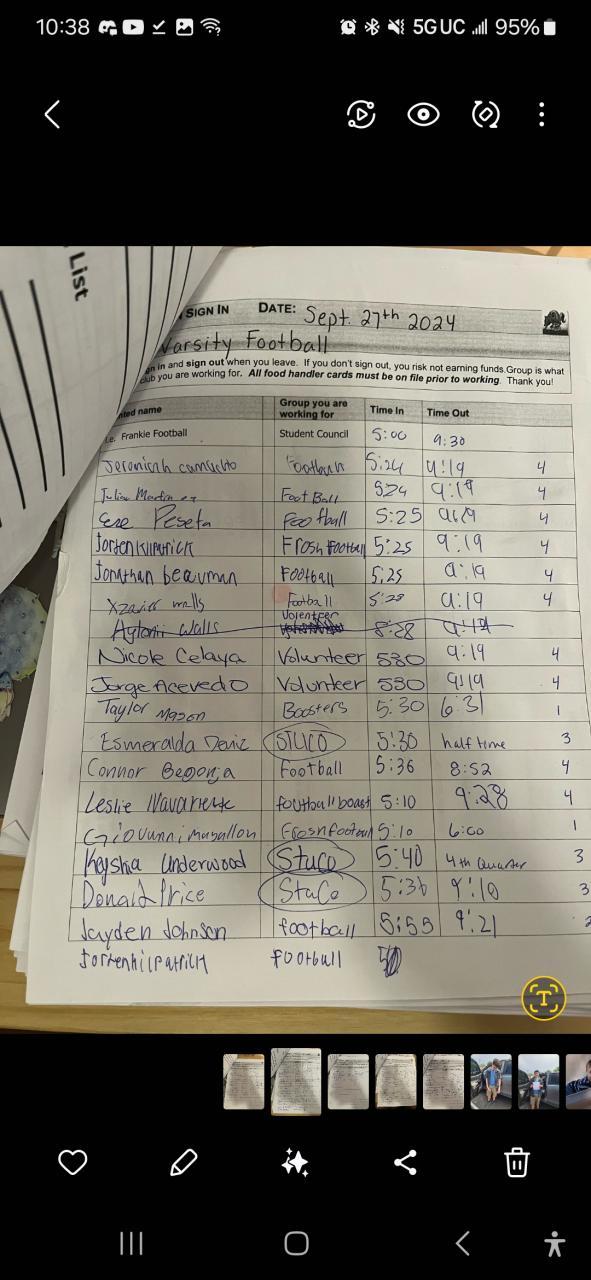 10:38 5G UC 95%
List
SIGN IN DATE: Sept. 27th 2024
Varsity Football
in and sign out when you leave. If you don't sign out, you risk not earning funds. Group is what
you are working for. All food handler cards must be on file prior to working. Thank you!
name Group you are working for Time In Time Out
Frankie Football Student Council 5:00 9:30
Football 5:24 9:19 4
Foot Ball 524 9:19 4
Peseta Football 5:25 9:19 4
Frosh Football 5:25 9:19 4
Jonathan beauman Football 5:25 9:19 4
Football 5:28 9:19 4
Walls Volenteer 5:28 9:19
Nicole Celaya Volunteer 530 9:19 4
Jorge Acevedo Volunteer 530 9:19 4
Taylor Mason Boosters 5:30 6:31 1
Esmeralda STUCO 5:30 half time 3
Connor Football 5:36 8:52 4
Leslie 5:10 9:28 4
5:10 6:00 1
Underwood Stuco 5:40 4th Quarter 3
Donald Price StuCo 5:36 9:10 3
Jayden Johnson football 5:55 9:21
football
T